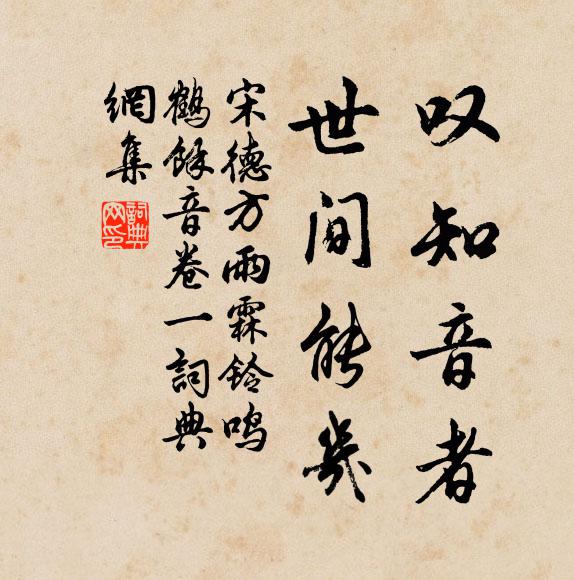 叹知音者
世间能几
宋德方雨霖铃鸣
鹤馀音卷一詞典
網集
詞典網印